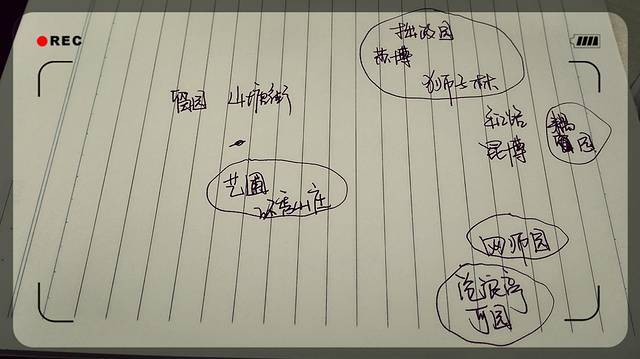 REC
拙政园
苏博
狮子林
留园 山塘街
平江路
昆博
耦园
艺圃
环秀山庄
网师园
沧浪亭
可园